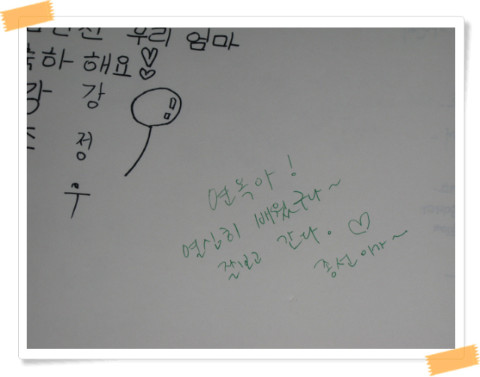 우리 엄마
축하 해요♡♡
강 강
정
우
연옥아!
열심히 배웠구나~
잘보고 간다. ♡